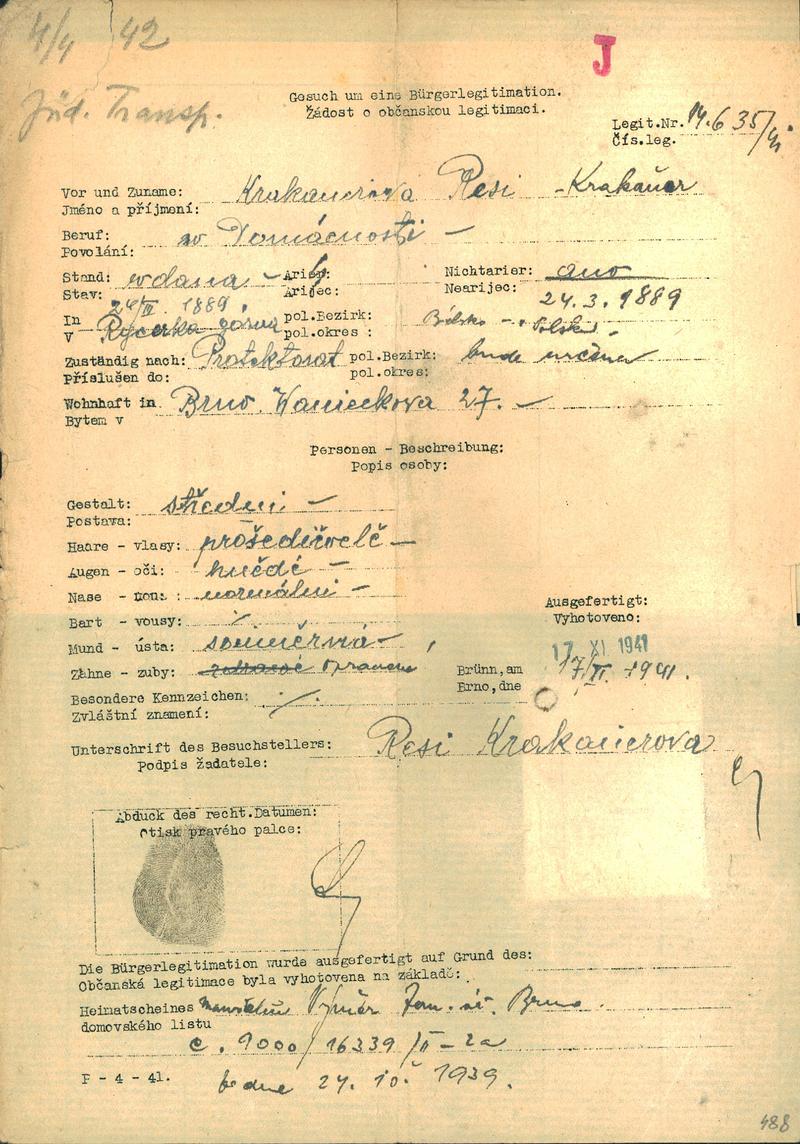 4/4 42
J
Jüd. Transp.
Gesuch um eine Bürgerlegitimation.
Žádost o občanskou legitimaci.
Legit.Nr. 14.635/
Čís.leg.
Vor und Zuname: Krakauerova Resi - Krakauer
Jméno a příjmení:
Beruf: v Domácnosti -
Povolání:
Stand: vdaná - Arier: Nichtarier: ano
Stav: Arijec: Nearijec:
24/III. 1889. 24.3.1889
In Rycerka górna pol.Bezirk: Bílsko - Polsko -
V pol.okres :
Zuständig nach: Protektorat pol.Bezirk: bude určena
Příslušen do: pol.okres:
Wohnhaft in Brno. Wanieckova 27. -
Bytem v
Personen - Beschreibung:
Popis osoby:
Gestalt: střední -
Postava:
Haare - vlasy: prošedivělé -
Augen - oči: hnědé -
Nase - nos: normální -
Bart - vousy: ./.
Mund - ústa: souměrná -
Zähne - zuby: opravené
Ausgefertigt:
Vyhotoveno:
17 XI 1941
Brünn,am 17/XI. 1941.
Brno,dne
Besondere Kennzeichen: ./.
Zvláštní znamení:
Unterschrift des Besuchstellers: Resi Krakauerova
Podpis žadatele:
Abduck des recht.Datumen:
Otisk pravého palce:
Die Bürgerlegitimation wurde ausgefertigt auf Grund des:
Občanská legitimace byla vyhotovena na základě:
Heimatscheines Výměr Zem. úř. Brno.
domovského listu
č. 9000/16339/II-2a
F - 4 - 41. ze dne 24. 10. 1939.
488